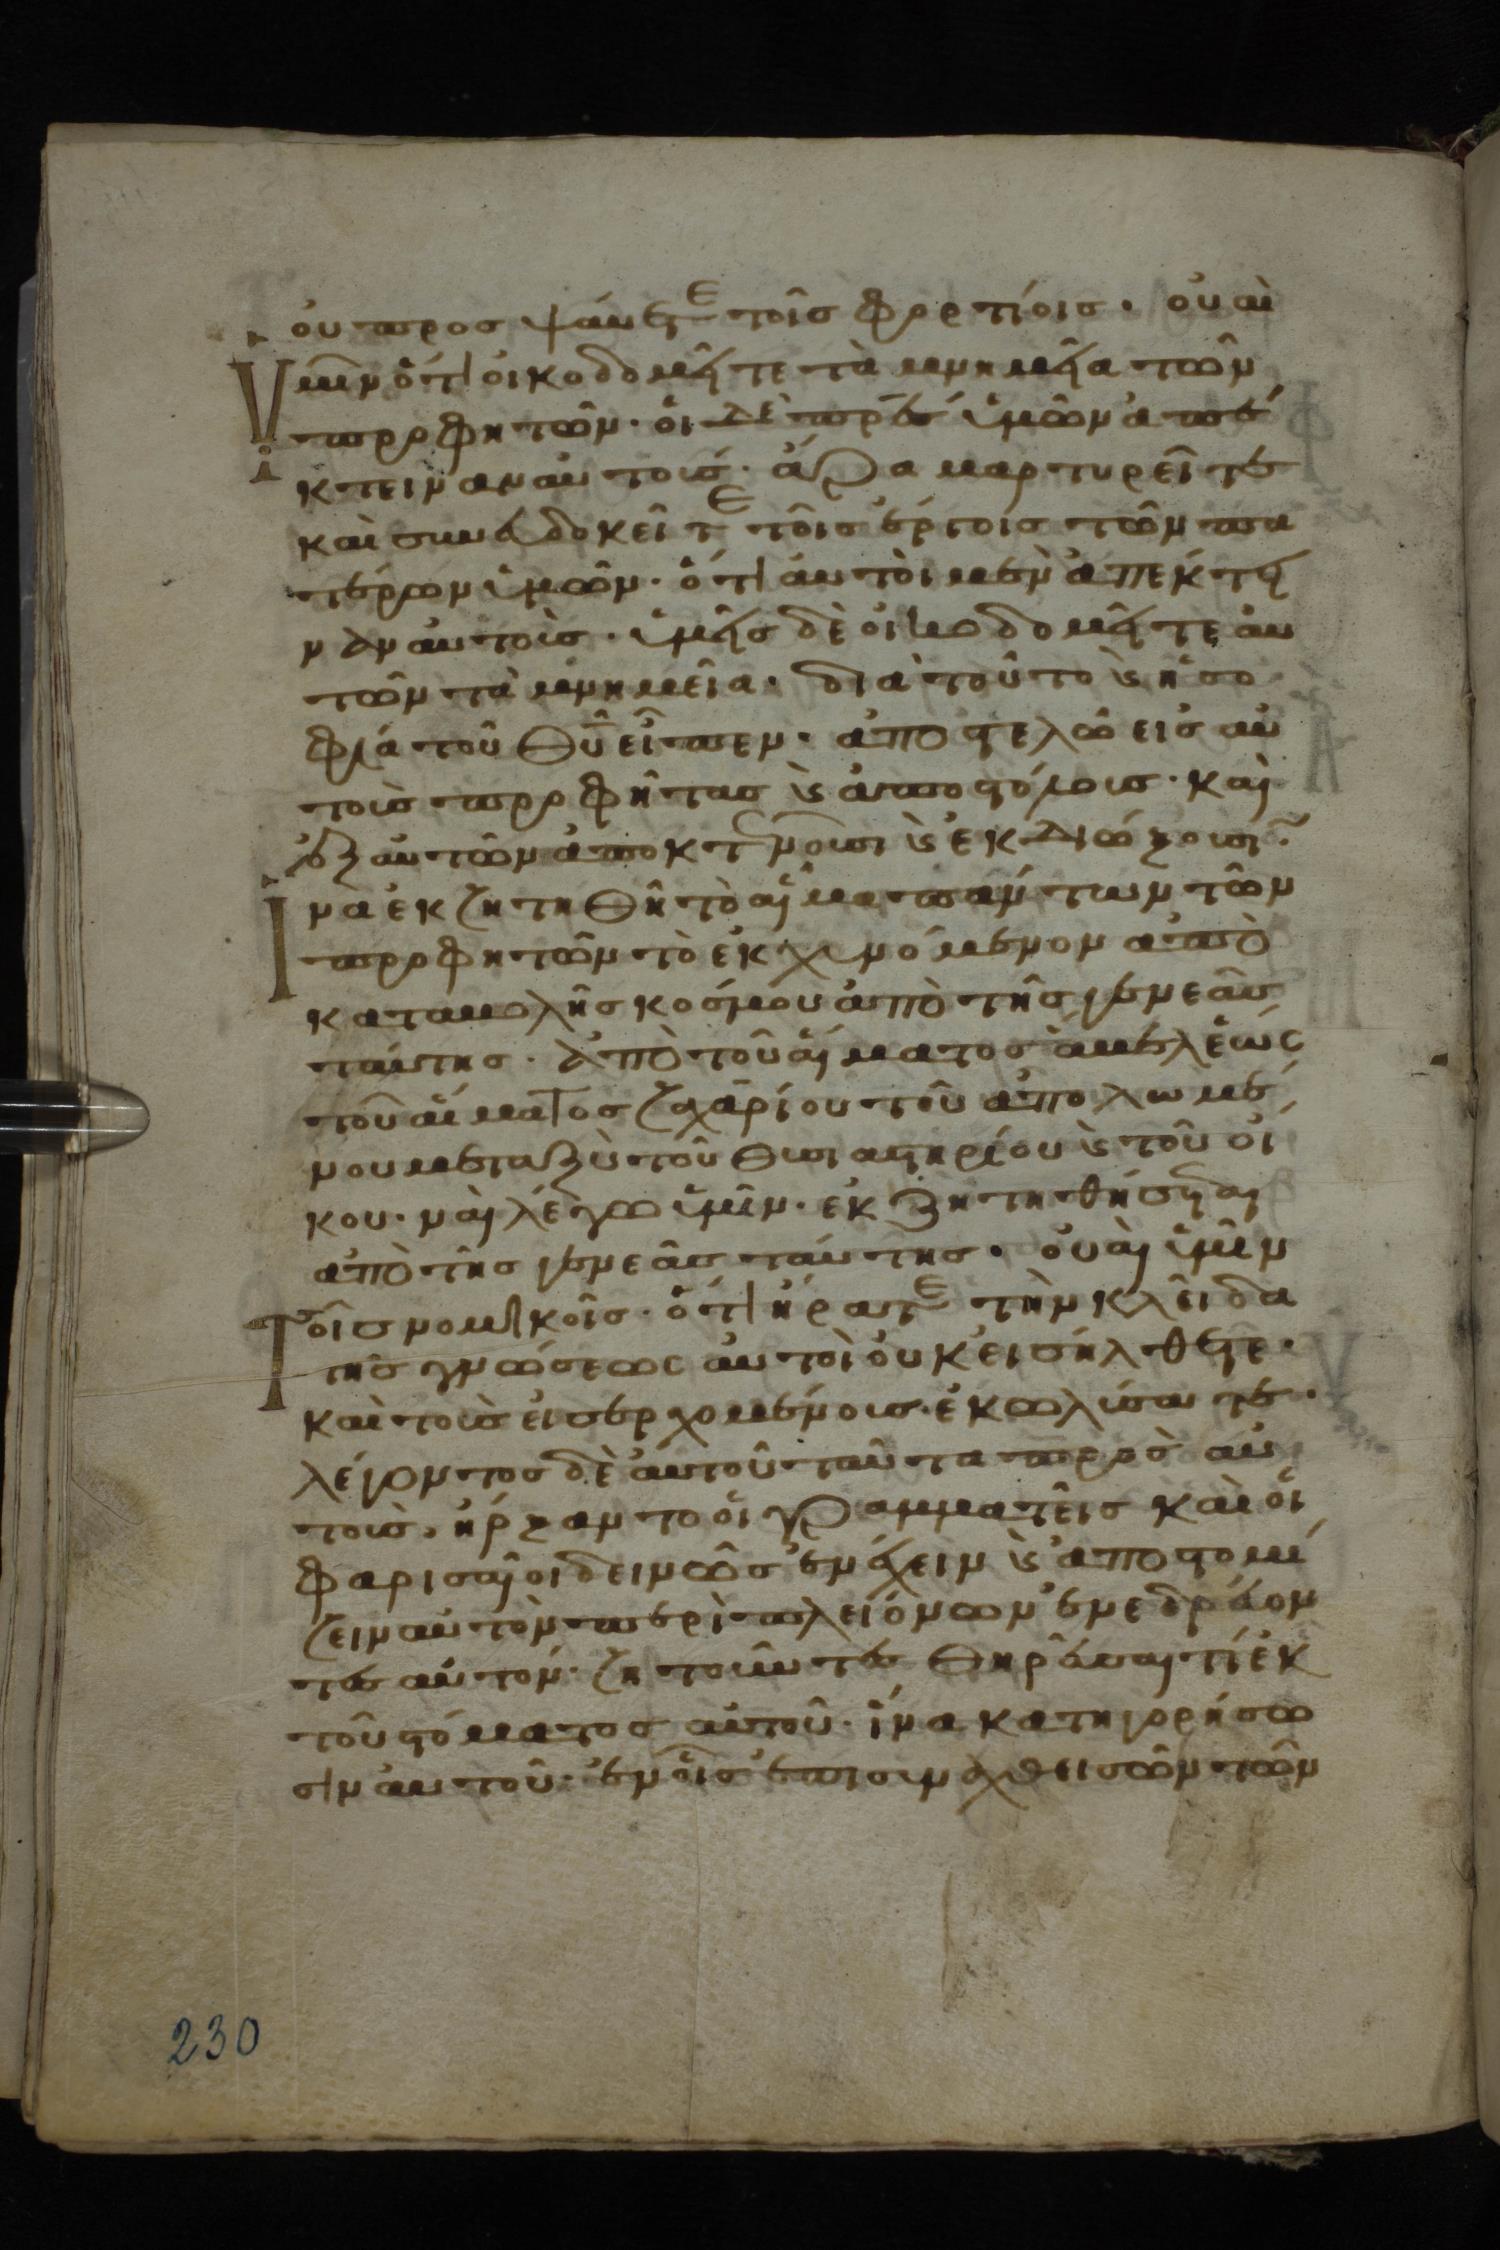 ου προσψάυετε τοῖς φορτίοις. ουαὶ
Ὑμῖν ὅτι οἰκοδομεῖτε τὰ μνημεῖα τῶν
προφητῶν. ὁι δὲ πρές ὑμῶν ἀπέ
κτειναν αυτούς. ἄρα μαρτυρεῖτε
καὶ συνευδοκεῖτε τοῖς ἔργοις τῶν πα
τέρων ὑμῶν. ὅτι ἀυτὸι μὲν ἀπέκτει
ναν αυτοὺς. ὑμεῖς δὲ οἰκοδομεῖτε ἀυ
τῶν τὰ μνημεῖα. διὰ τοῦτο κ ἡ σο
φία τοῦ θυ εἶπεν. ἀποστελῶ εἰς αυ
τοὺς προφήτας κ ἀποστόλους. καὶ
ἐξ αυτῶν ἀποκτενουσι κ ἐκδιώξουσι.
Ἵνα ἐκζητηθῆ τὸ αἷμα πάντων τῶν
προφητῶν τὸ ἐκχυνόμενον ἀπὸ
καταβολῆς κόσμου ἀπὸ τῆς γενεᾶς
ταύτης. ἀπὸ τοῦ αἵματος ἄβελ ἕως
τοῦ αἵματος ζαχαρίου τοῦ ἀπολωμέ
νου μεταξὺ τοῦ θυσιαστηρίου κ τοῦ οἴ
κου. ναὶ λέγω ὑμῖν. ἐκζητηθήσεται
ἀπὸ τῆς γενεᾶς ταύτης. ουαὶ ὑμῖν
Τοῖς νομικοῖς. ὅτι ἤρατε τὴν κλεῖδα
τῆς γνώσεως αυτοὶ ουκ εἰσήλθετε.
καὶ τοὺς εἰσερχομένους. ἐκωλύσατε.
λέγοντος δὲ ἀυτοῦ ταῦτα πρὸς αυ
τοὺς, ἤρξαντο ὁι γραμματεῖς καὶ ὁι
φαρισαῖοι δεινῶς ἐνέχειν κ ἀποστομί
ζειν αυτὸν περὶ πλειόνων ἐνεδρέυον
τες αὐτόν. ζητοῦντες θηρεῦσαι τί ἐκ
τοῦ στόματος αὐτοῦ. ἵνα κατηγορήσω
σιν ἀυτοῦ. ἐν οἷς ἐπισυναχθεισῶν τῶν
230